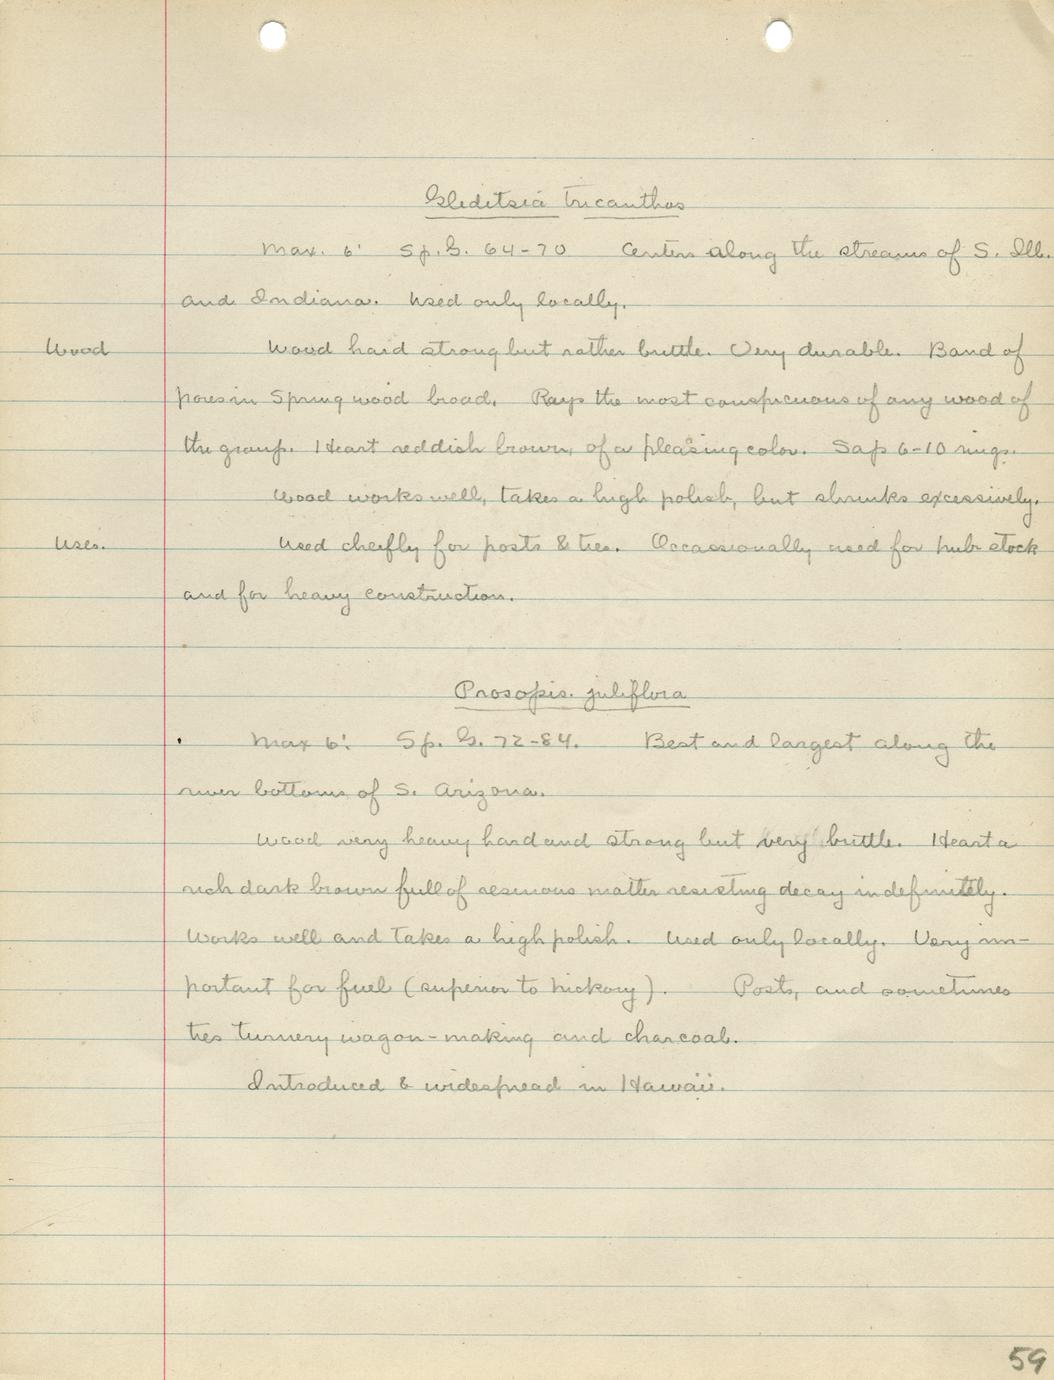 Gleditsia tricanthos
Max. 6' Sp. G. 64-70 Centers along the streams of S. Ill.
and Indiana. Used only locally.
Wood Wood hard strong but rather brittle. Very durable. Band of
pores in Spring wood broad. Rays the most conspicuous of any wood of
the group. Heart reddish brown, of a pleasing color. Sap 6-10 rings.
Wood works well, takes a high polish, but shrinks excessively.
Uses. Used cheifly for posts & ties. Occassionally used for hub stock
and for heavy construction.
Prosopis juliflora
Max 6'. Sp. G. 72-84. Best and largest along the
river bottoms of S. Arizona.
Wood very heavy hard and strong but very brittle. Heart a
rich dark brown full of resinous matter resisting decay indefinitely.
Works well and takes a high polish. Used only locally. Very im-
portant for fuel (superior to hickory). Posts, and sometimes
ties turnery wagon-making and charcoal.
Introduced & widespread in Hawaii.
59